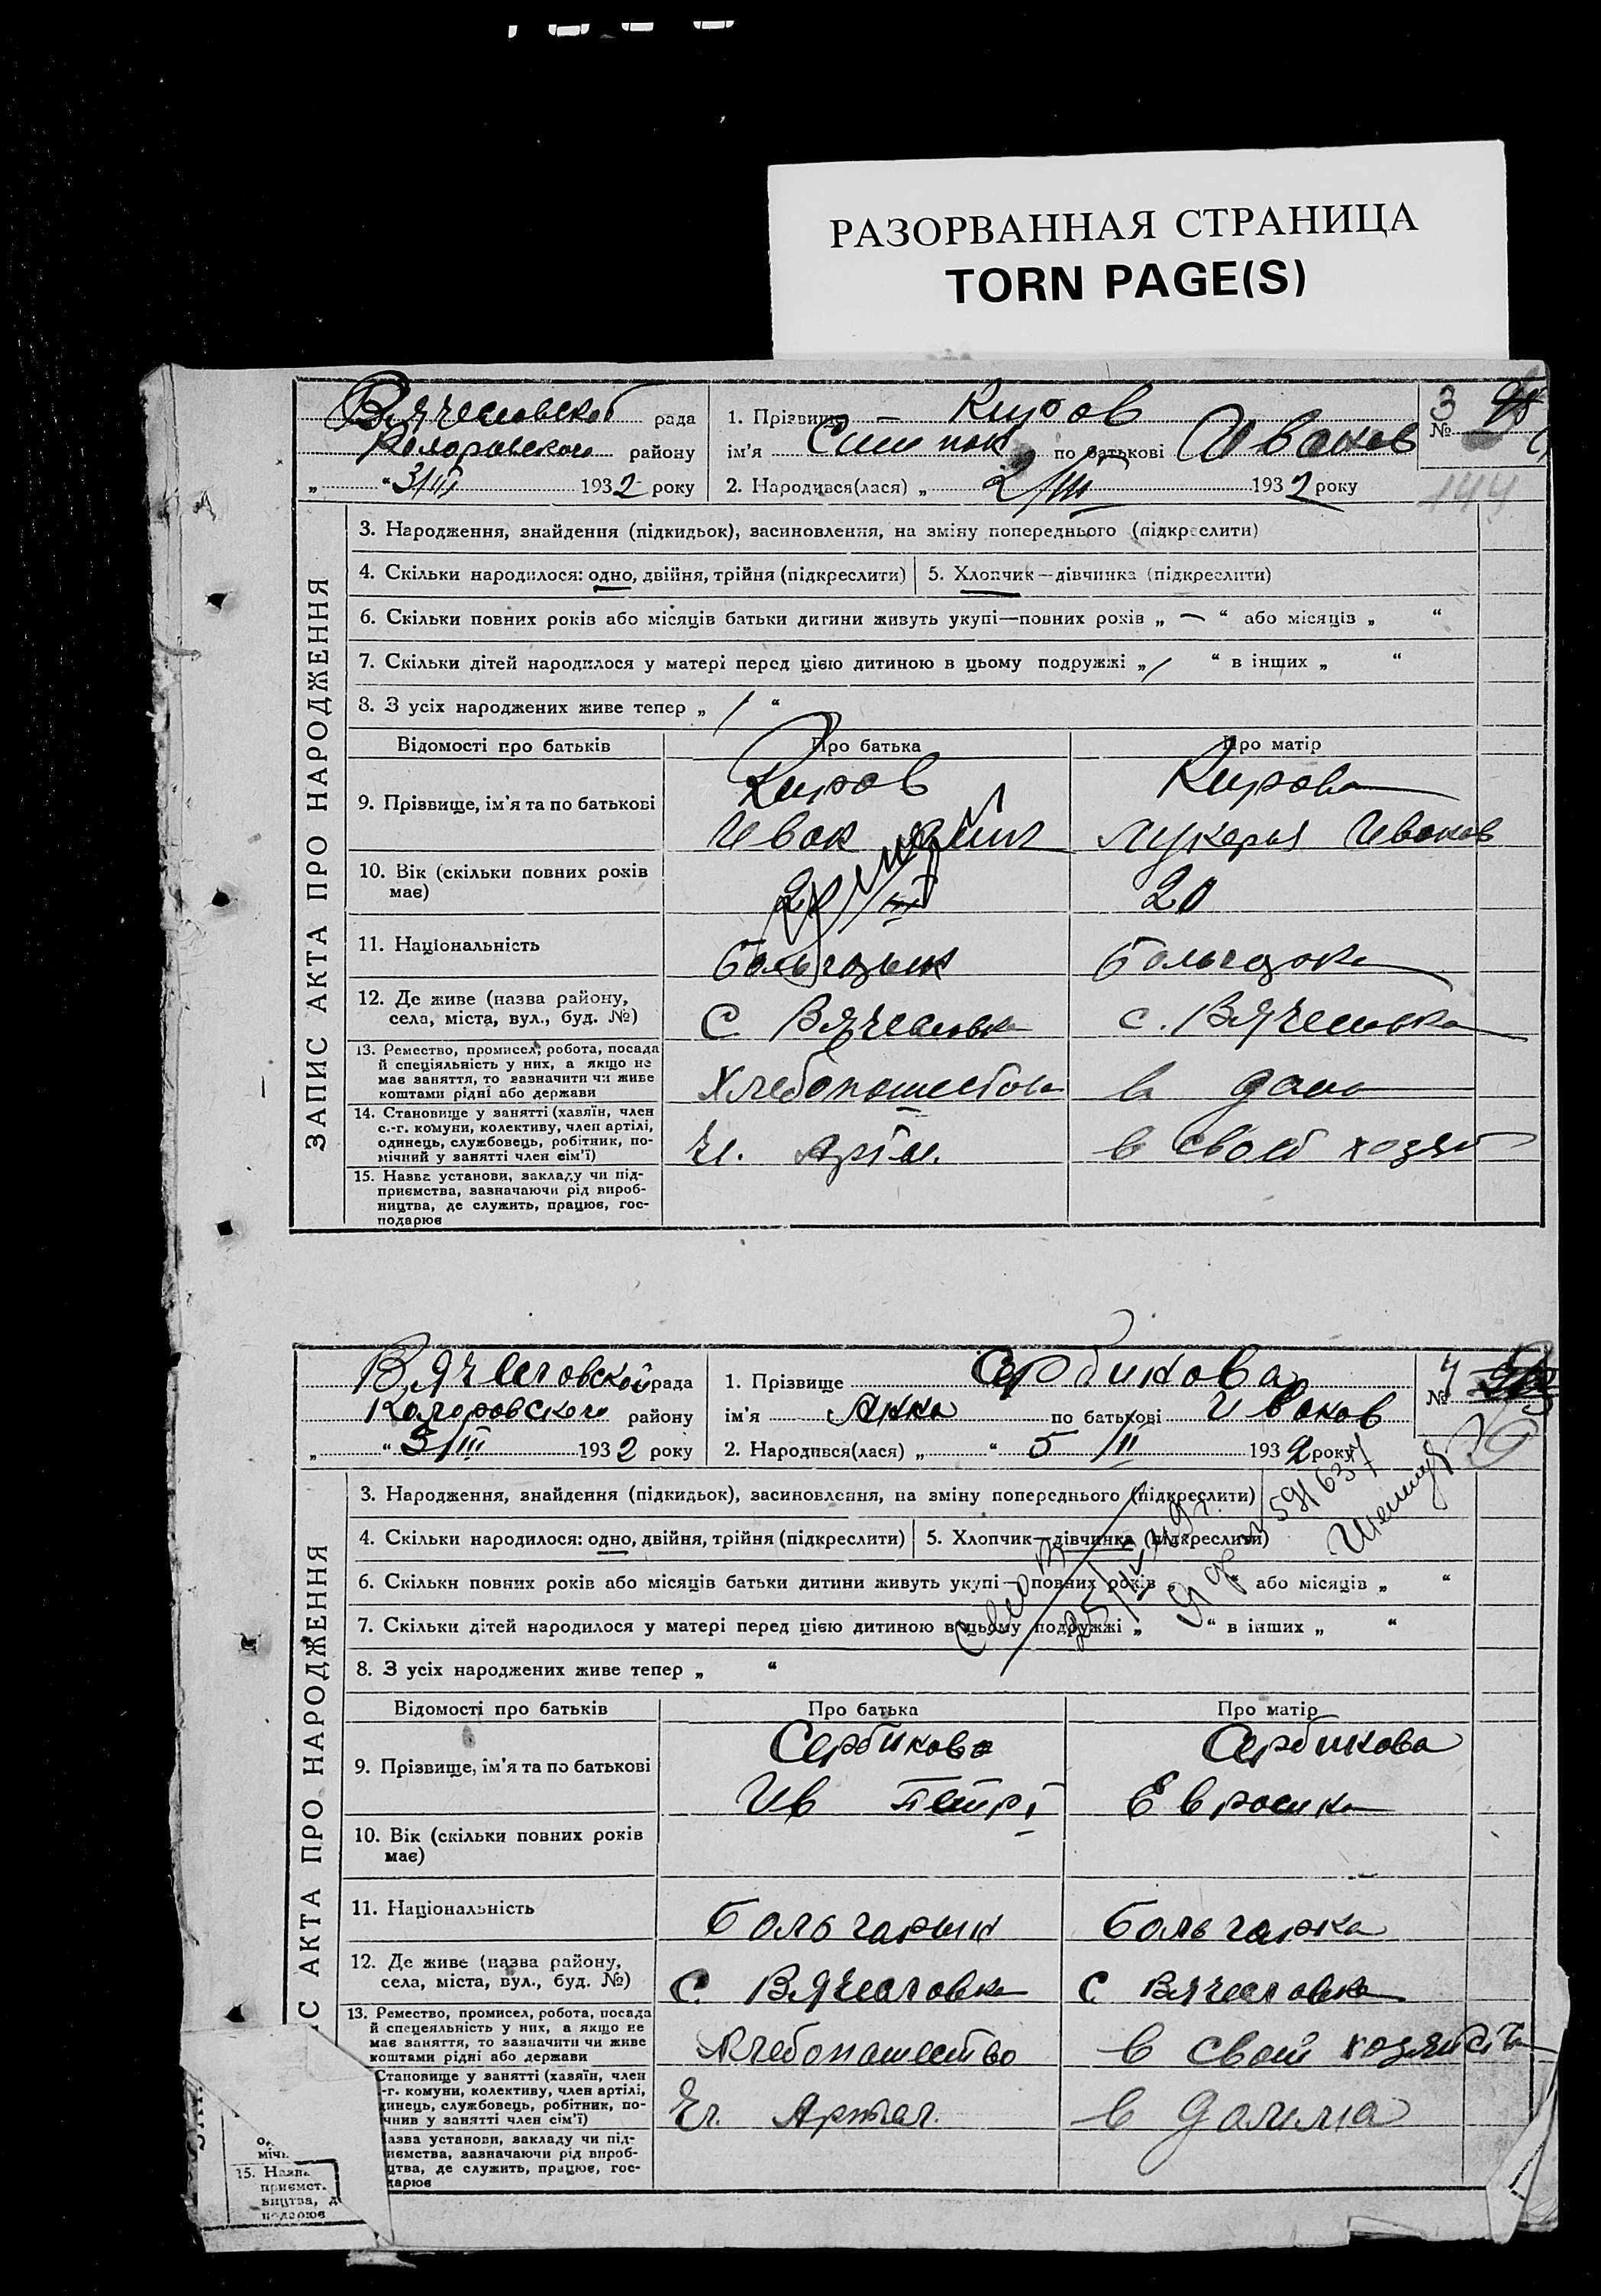 РАЗОРВАННАЯ СТРАНИЦА
TORN PAGE(S)
ЗАПИС АКТА ПРО НАРОДЖЕННЯ
Вячеславской рада
району
„ “ 3/III 1932 року
1. Прізвище – Киров
ім’я по батькові Иванов
2. Народився(лася) „ 2/III 1932 року
3
№
144
3. Народження, знайдення (підкидьок), засиновлення, на зміну попереднього (підкреслити)
4. Скільки народилося: одно, двійня, трійня (підкреслити) 5. Хлопчик—дівчинка (підкреслити)
6. Скільки повних років або місяців батьки дитини живуть укупі—повних років „ — “ або місяців „ “
7. Скільки дітей народилося у матері перед цією дитиною в цьому подружжі „ / “ в інших „ “
8. З усіх народжених живе тепер „ / “
Відомості про батьків Про батька Про матір
9. Прізвище, ім’я та по батькові
Киров Кирова
Иван Лукерья Иванов
10. Вік (скільки повних років
має)
20
11. Національність
12. Де живе (назва району,
села, міста, вул., буд. №)
с. Вячеславка с. Вячеславка
13. Ремество, промисел, робота, посада
й спеціяльність у них, а якщо не
має заняття, то зазначити чи живе
коштами рідні або держави
14. Становище у занятті (хазяїн, член
с.-г. комуни, колективу, член артілі,
одинець, службовець, робітник, по-
мічний у занятті член сім’ї)
Чл. Артил. в своей хозяй
15. Назва установи, закладу чи під-
приємства, зазначаючи рід вироб-
ництва, де служить, працює, гос-
подарює
С АКТА ПРО НАРОДЖЕННЯ
Вячеславской рада
Коларовского району
„ “ 3/III 1932 року
1. Прізвище Сербинова
ім’я Анна по батькові Иванов
2. Народився(лася) „ “ 5/II 1932 року
4
№
3. Народження, знайдення (підкидьок), засиновлення, на зміну попереднього (підкреслити)
4. Скільки народилося: одно, двійня, трійня (підкреслити) 5. Хлопчик—дівчинка (підкреслити)
6. Скільки повних років або місяців батьки дитини живуть укупі—повних років „ “ або місяців „ “
7. Скільки дітей народилося у матері перед цією дитиною в цьому подружжі „ “ в інших „ “
8. З усіх народжених живе тепер „ “
Відомості про батьків Про батька Про матір
9. Прізвище, ім’я та по батькові
Сербинова Сербинова
Ив Петр.
10. Вік (скільки повних років
має)
11. Національність
Больгарин Больгарка
12. Де живе (назва району,
села, міста, вул., буд. №)
С. Вячеславка С. Вячеславка
13. Ремество, промисел, робота, посада
й спецеяльність у них, а якщо не
має заняття, то зазначити чи живе
коштами рідні або держави
Хлебопашество в свой хозяйства
Становище у занятті (хазяїн, член
-г. комуни, колективу, член артілі,
динець, службовець, робітник, по-
чнив у занятті член сім’ї)
Чл. Артел.
азва установи, закладу чи під-
иємства, зазначаючи рід вироб-
цтва, де служить, працює, гос-
дарює
15. Назва
приємст.
ництва, д
подарює